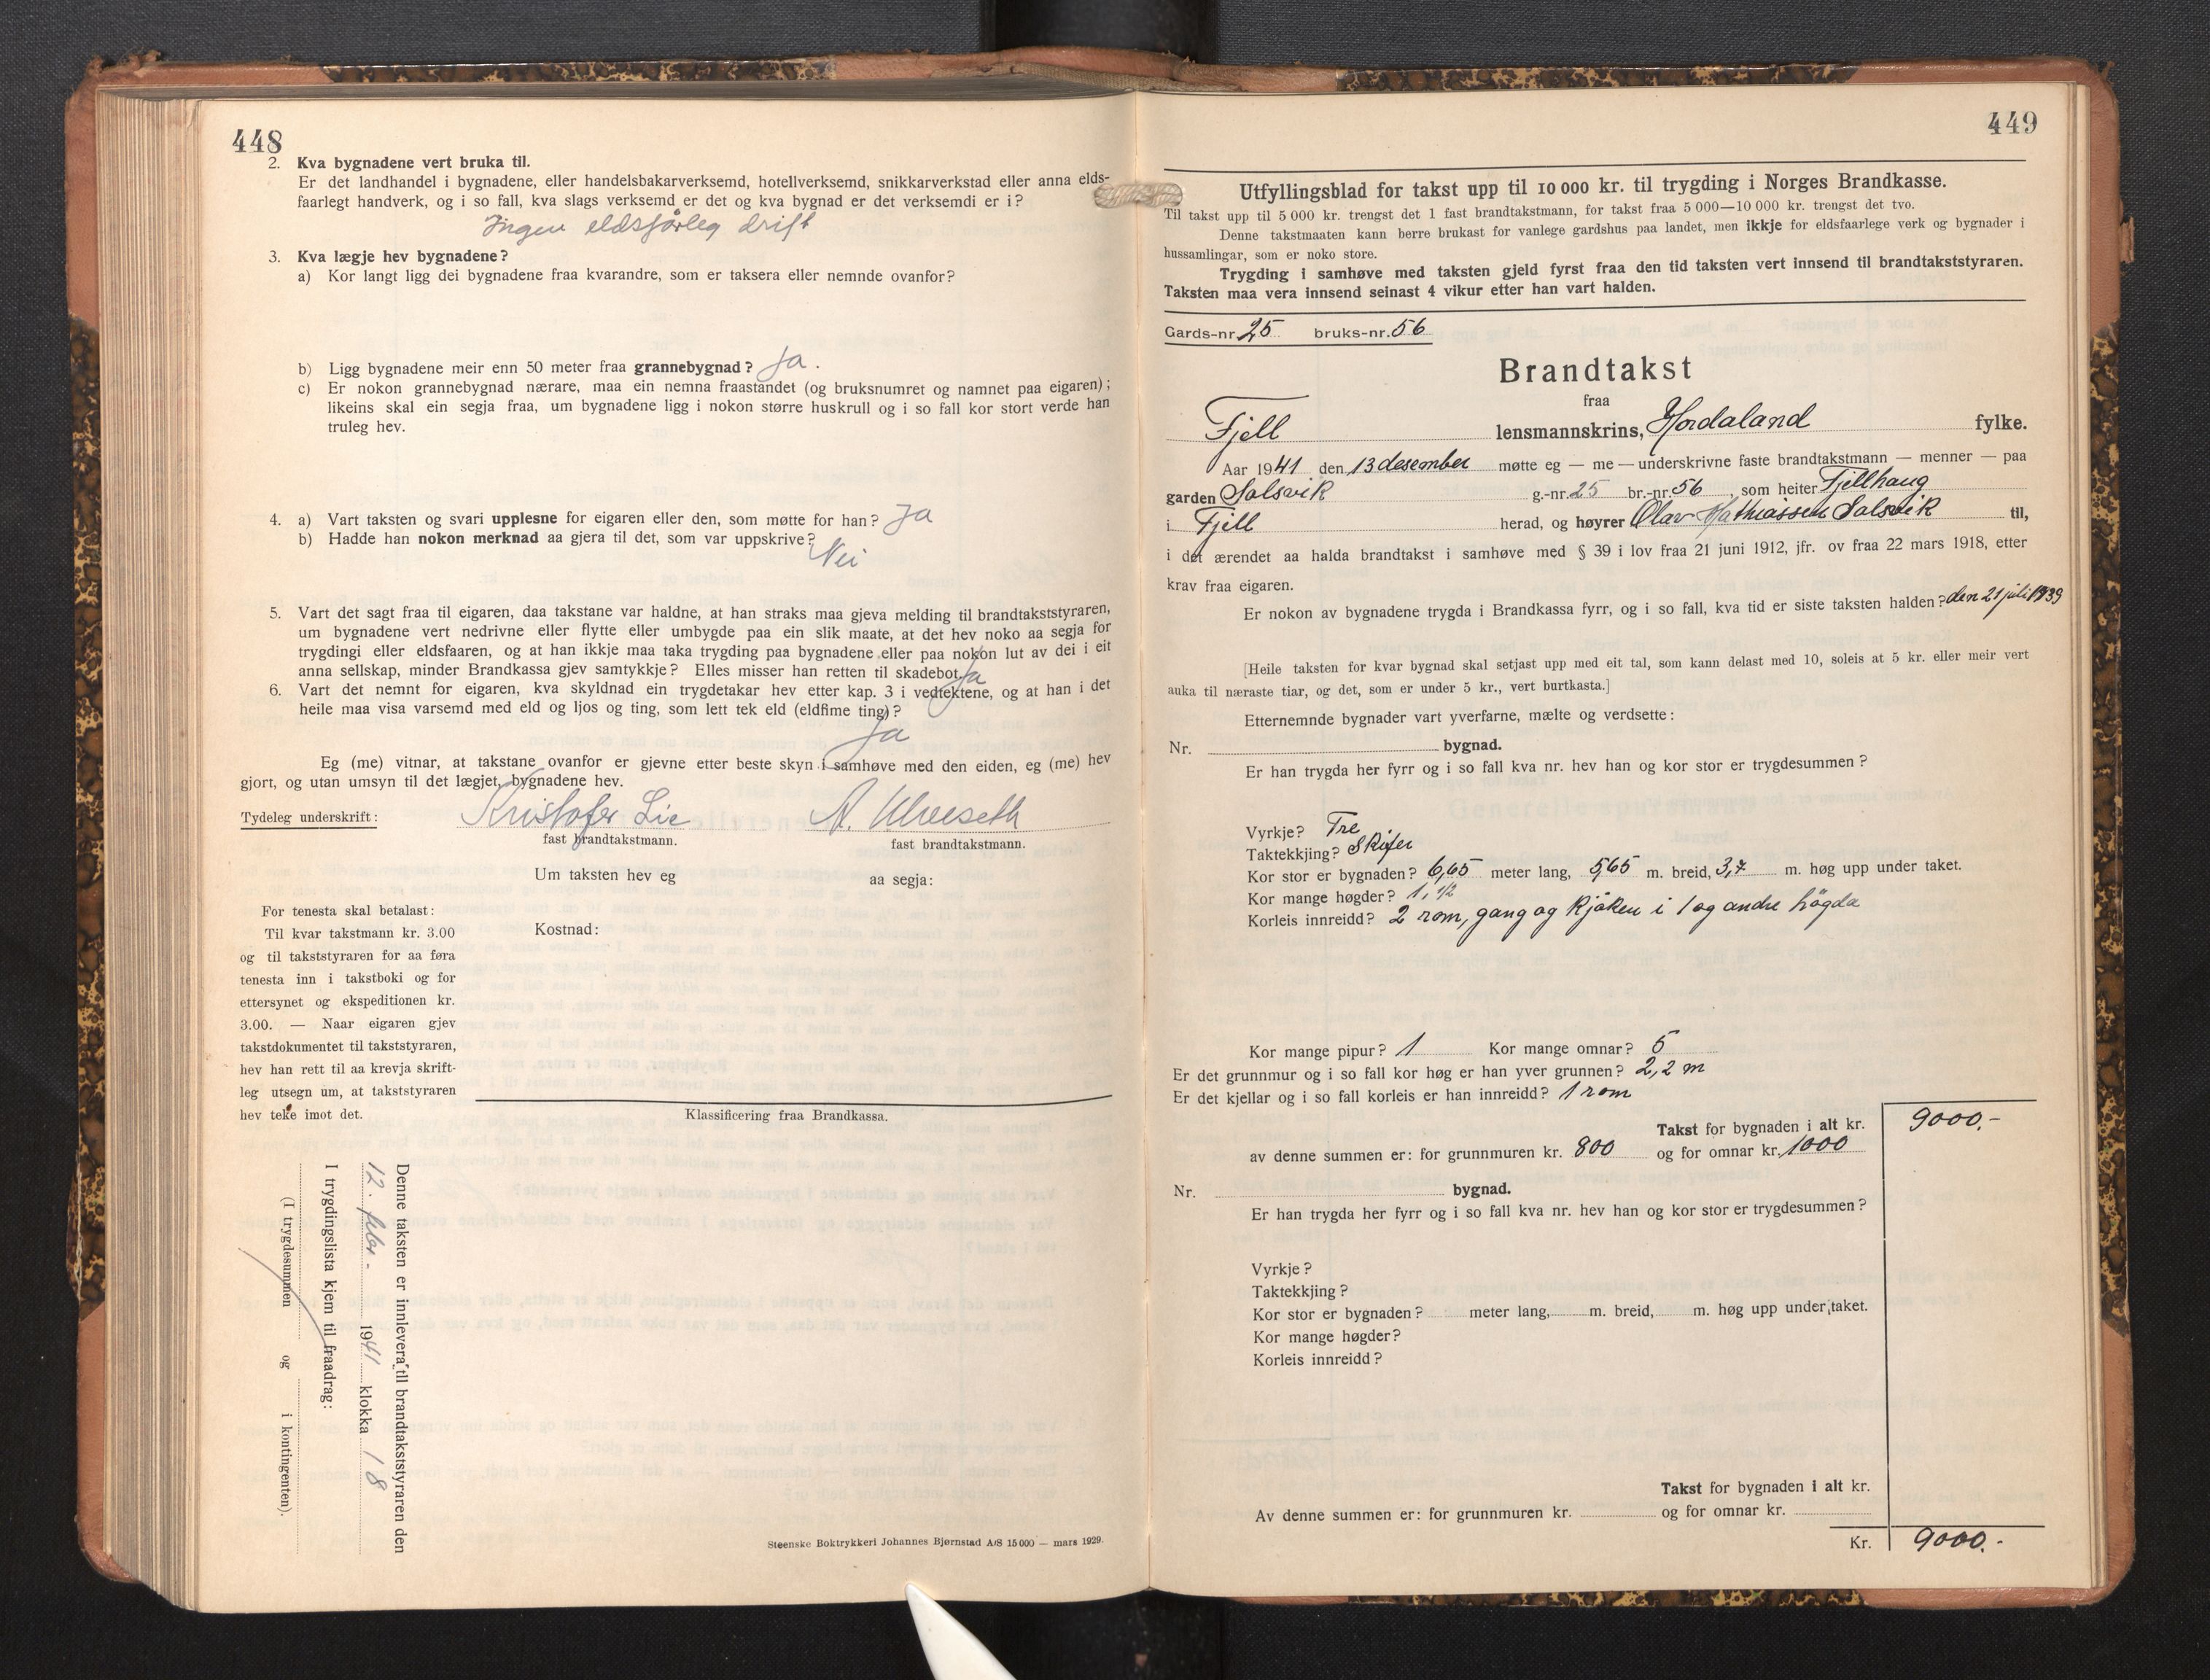 448
2. Kva bygnadene vert bruka til.
Er det landhandel i bygnadene, eller handelsbakarverksemd, hotellverksemd, snikkarverkstad eller anna elds-
faarlegt handverk, og i so fall, kva slags verksemd er det og kva bygnad er det verksemdi er i?
Ingen eldsfårleg drift
3. Kva lægje hev bygnadene?
a) Kor langt ligg dei bygnadene fraa kvarandre, som er taksera eller nemnde ovanfor?
b) Ligg bygnadene meir enn 50 meter fraa grannebygnad? Ja.
c) Er nokon grannebygnad nærare, maa ein nemna fraastandet (og bruksnumret og namnet paa eigaren);
likeins skal ein segja fraa, um bygnadene ligg i nokon større huskrull og i so fall kor stort verde han
truleg hev.
4. a) Vart taksten og svari upplesne for eigaren eller den, som møtte for han? Ja
b) Hadde han nokon merknad aa gjera til det, som var uppskrive?
Nei
5. Vart det sagt fraa til eigaren, daa takstane var haldne, at han straks maa gjeva melding til brandtakststyraren,
um bygnadene vert nedrivne eller flytte eller umbygde paa ein slik maate, at det hev noko aa segja for
trygdingi eller eldsfaaren, og at han ikkje maa taka trygding paa bygnadene eller paa nokon lut av dei i eit
anna sellskap, minder Brandkassa gjev samtykkje? Elles misser han retten til skadebot. Ja
6. Vart det nemnt for eigaren, kva skyldnad ein trygdetakar hev etter kap. 3 i vedtektene, og at han i det
heile maa visa varsemd med eld og ljos og ting, som lett tek eld (eldfime ting)?
Ja
Eg (me) vitnar, at takstane ovanfor er gjevne etter beste skyn i samhøve med den eiden, eg (me) hev
gjort, og utan umsyn til det lægjet, bygnadene hev.
Tydeleg underskrift: Kristofer Lie A. Ulveseth
fast brandtakstmann. fast brandtakstmann.
Um taksten hev eg aa segja:
For tenesta skal betalast:
Til kvar takstmann kr. 3.00
og til takststyraren for aa føra
tenesta inn i takstboki og for
ettersynet og ekspeditionen kr.
3.00. — Naar eigaren gjev
takstdokumentet til takststyraren,
hev han rett til aa krevja skrift-
leg utsegn um, at takststyraren
hev teke imot det.
Kostnad:
Klassificering fraa Brandkassa.
Denne taksten er innlevera til brandtakststyraren den
12. febr. 1941 klokka 18
I trygdingslista kjem til fraadrag:
(I trygdesummen og i kontingenten).
Steenske Boktrykkeri Johannes Bjørnstad A/S 15 000 — mars 1929.
449
Utfyllingsblad for takst upp til 10 000 kr. til trygding i Norges Brandkasse.
Til takst upp til 5 000 kr. trengst det 1 fast brandtakstmann, for takst fraa 5 000—10 000 kr. trengst det tvo.
Denne takstmaaten kann berre brukast for vanlege gardshus paa landet, men ikkje for eldsfaarlege verk og bygnader i
hussamlingar, som er noko store.
Trygding i samhøve med taksten gjeld fyrst fraa den tid taksten vert innsend til brandtakststyraren.
Taksten maa vera innsend seinast 4 vikur etter han vart halden.
Gards-nr. 25 bruks-nr. 56
Brandtakst
fraa
Fjell lensmannskrins, Hordaland fylke.
Aar 1941 den 13 desember møtte eg — me — underskrivne faste brandtakstmann — menner — paa
garden Solsvik g.-nr. 25 br.-nr. 56, som heiter Fjellhaug
i Fjell herad, og høyrer Olav Mathiassen Solsvik til,
i det ærendet aa halda brandtakst i samhøve med § 39 i lov fraa 21 juni 1912, jfr. ov fraa 22 mars 1918, etter
krav fraa eigaren.
Er nokon av bygnadene trygda i Brandkassa fyrr, og i so fall, kva tid er siste taksten halden? den 21 juli 1939
[Heile taksten for kvar bygnad skal setjast upp med eit tal, som kann delast med 10, soleis at 5 kr. eller meir vert
auka til næraste tiar, og det, som er under 5 kr., vert burtkasta.]
Etternemnde bygnader vart yverfarne, mælte og verdsette:
Nr. bygnad.
Er han trygda her fyrr og i so fall kva nr. hev han og kor stor er trygdesummen?
Vyrkje? Tre
Taktekkjing? Skifer
Kor stor er bygnaden? 6,65 meter lang, 5,65 m. breid, 3,7 m. høg upp under taket.
Kor mange høgder? 1, 1/2
Korleis innreidd? 2 rom, gang og kjøken i 1 og andre högda
Kor mange pipur? 1 Kor mange omnar? 5
Er det grunnmur og i so fall kor høg er han yver grunnen? 2,2 m
Er det kjellar og i so fall korleis er han innreidd? 1 rom
Takst for bygnaden i alt kr. 9000.-
av denne summen er: for grunnmuren kr. 800 og for omnar kr. 1000
Nr. bygnad.
Er han trygda her fyrr og i so fall kva nr. hev han og kor stor er trygdesummen?
Vyrkje?
Taktekkjing?
Kor stor er bygnaden? meter lang, m. breid, m. høg upp under taket.
Kor mange høgder?
Korleis innreidd?
Takst for bygnaden i alt kr.
Av denne summen er: for grunnmuren kr. og for omnar kr.
Kr. 9000.-